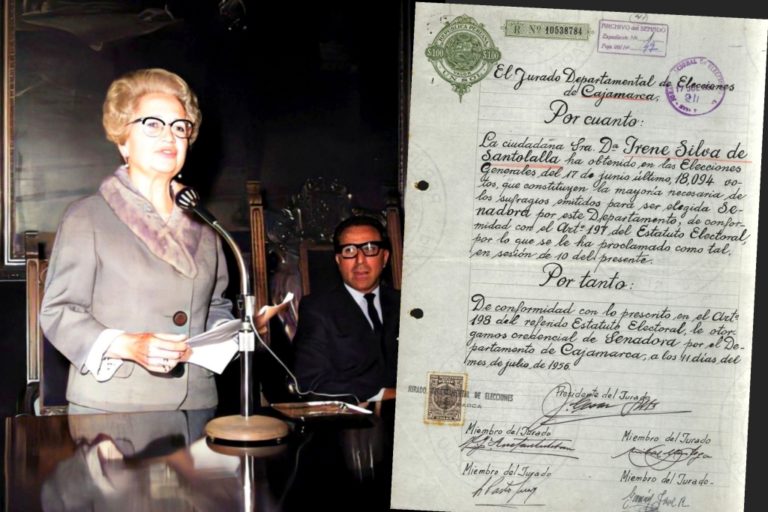 REPUBLICA PERUANA
$100 $100
R Nº 10538784
ARCHIVO DEL SENADO
El Jurado Departamental de Elecciones
de Cajamarca,
Por cuanto:
La ciudadana Sra. Dª Irene Silva de
Santolalla ha obtenido, en las Elecciones
Generales del 17 de junio último, 18,094 vo-
tos, que constituyen la mayoría necesaria de
los sufragios emitidos para ser elegida Se-
nadora por este Departamento, de confor-
midad con el Artº 197 del Estatuto Electoral,
por lo que se le ha proclamado como tal,
en sesión de 10 del presente.
Por tanto:
De conformidad con lo prescrito en el Artº
198 del referido Estatuto Electoral, le otor-
gamos credencial de Senadora por el De-
partamento de Cajamarca, a los 11 días del
mes de julio de 1956.
JURADO DEPARTAMENTAL DE ELECCIONES
Presidente del Jurado
Miembro del Jurado
Miembro del Jurado
Miembro del Jurado
Miembro del Jurado